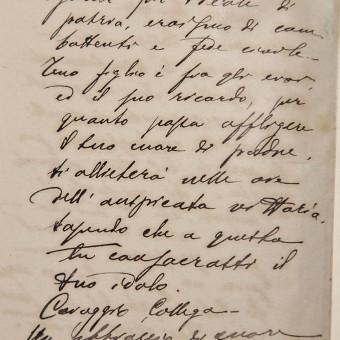 per ideali di
patria, eroismo di com
battenti e fede civile -
Tuo figlio è fra gli eroi
ed il suo ricordo, per
quanto possa affliggere
il tuo cuore di padre,
ti allieterà nelle ore
dell'auspicata vittoria,
sapendo che a questa
tu consacrasti il
tuo idolo.
Coraggio Collega -
Un abbraccio di cuore